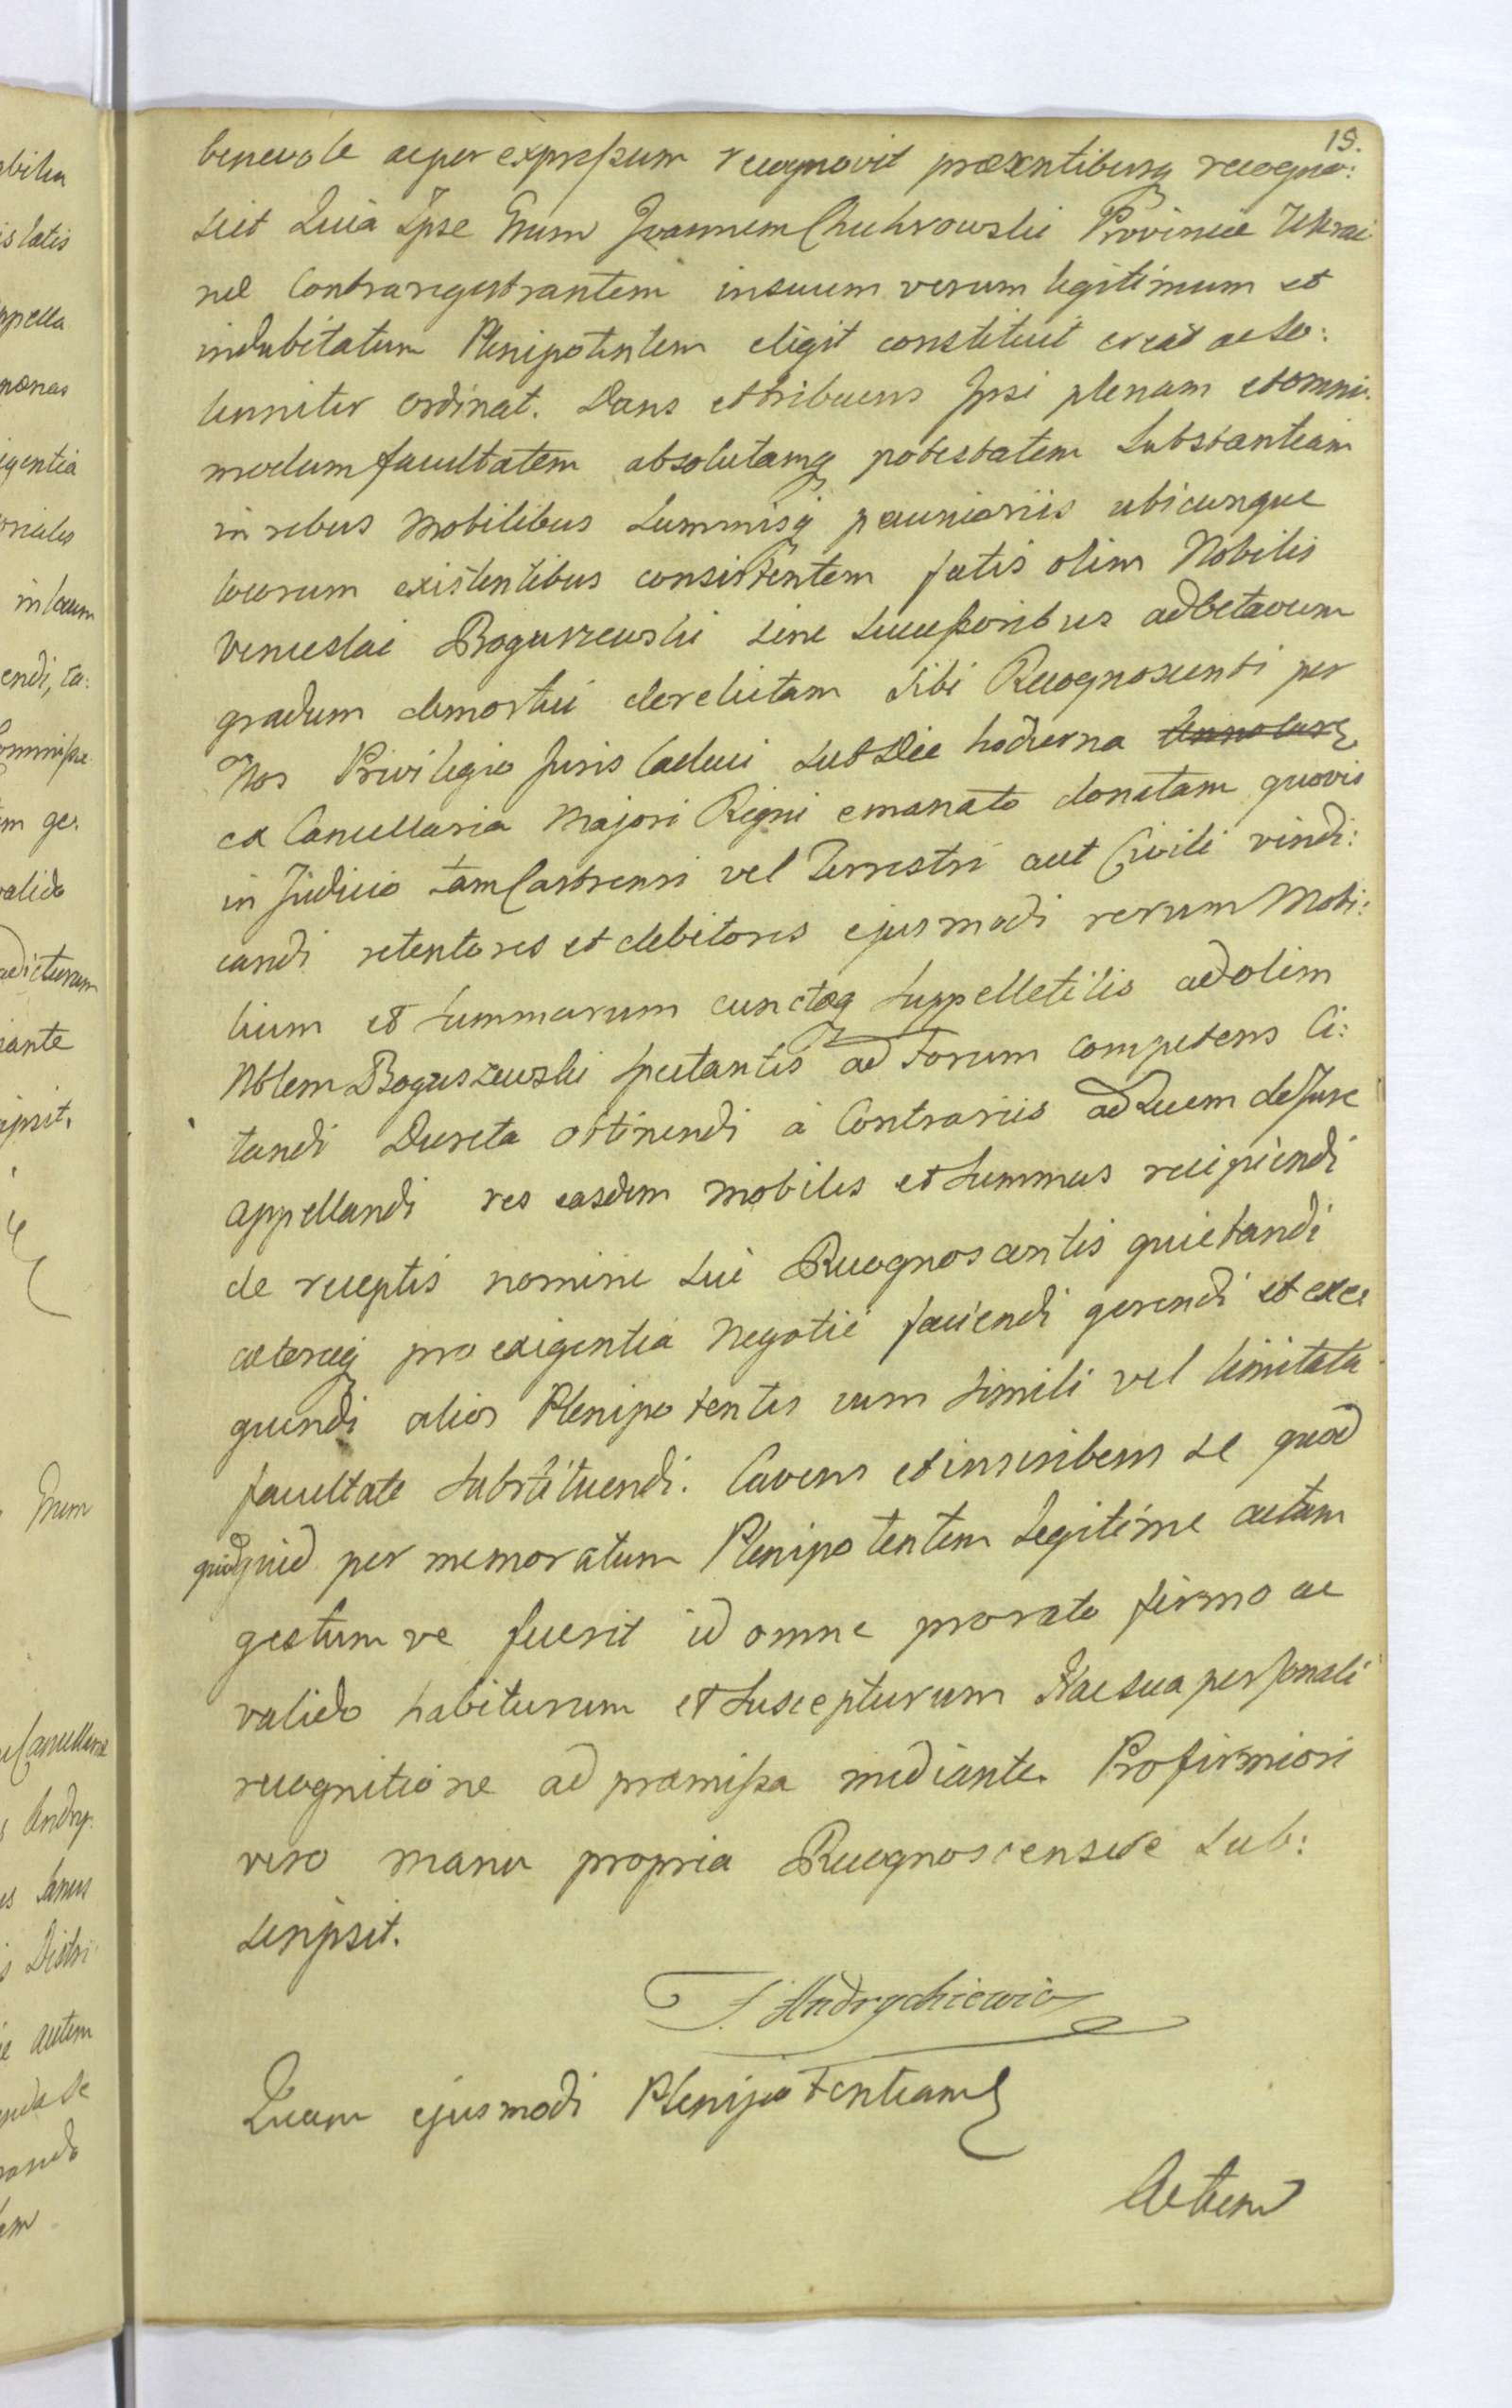 15.
benevole ac per expressum recognovit præsentibusq recogno:
scit Quia Ipse Grum Joannem Chuhrowski Provinciæ Ukrai
næ Contraregestrantem in suum verum legitimum et
indubitatum Plenipotentem eligit constituit creat ac so:
lenniter ordinat. Dans et tribuens Ipsi plenam et omni:
modam facultatem absolutamq potestatem Substantiam
in rebus Mobilibus Summisq pecuniariis ubicunque
locorum existentibus consistentem fatis olim Nobilis
Venceslai Boguszewski sine Successoribus ad octavum
gradum demortui derelictam Sibi Recognoscenti per
Nos Privilegio Juris Caduci sub Die hodierna
ex Cancellaria Majori Regni emanato donatam quovis
in Judicio tam Castrensi vel Terrestri aut Civili vindi:
candi retentores et debitores ejusmodi rerum Mobi:
lium et Summarum cunctæq Suppelletilis ad olim
Nblem Boguszewski spectantis ad Forum competens Ci:
tandi Decreta obtinendi à Contrariis ad Quem de Jure
appellandi res easdem mobiles et Summas recipiendi
de receptis nomine Sui Recognoscentis quietandi
cæteraq pro exigentia Negotii faciendi gerendi et exe
quendi alios Plenipotentes cum simili vel limitata
facultate Substituendi. Cavens et inscribens se quod
quidquid per memoratum Plenipotentem Legitime actum
gestum ve fuerit id omne pro rato firmo ac
valido habiturum et Suscepturum Hac sua personali
recognitione ad præmissa mediante. Pro firmiori
vero manu propria Recognoscens se Sub:
scripsit.
F. Andrychiewicz
Quam ejusmodi Plenipotentiam
Actum
abilem
is latis
appella
pœnas
igentia
oriales
in locum
endi, ca:
ommissæ
m ge.
valido
adicturum
iante
ipsit.
Grum
Cancellariæ
Andry:
Districtus
autem